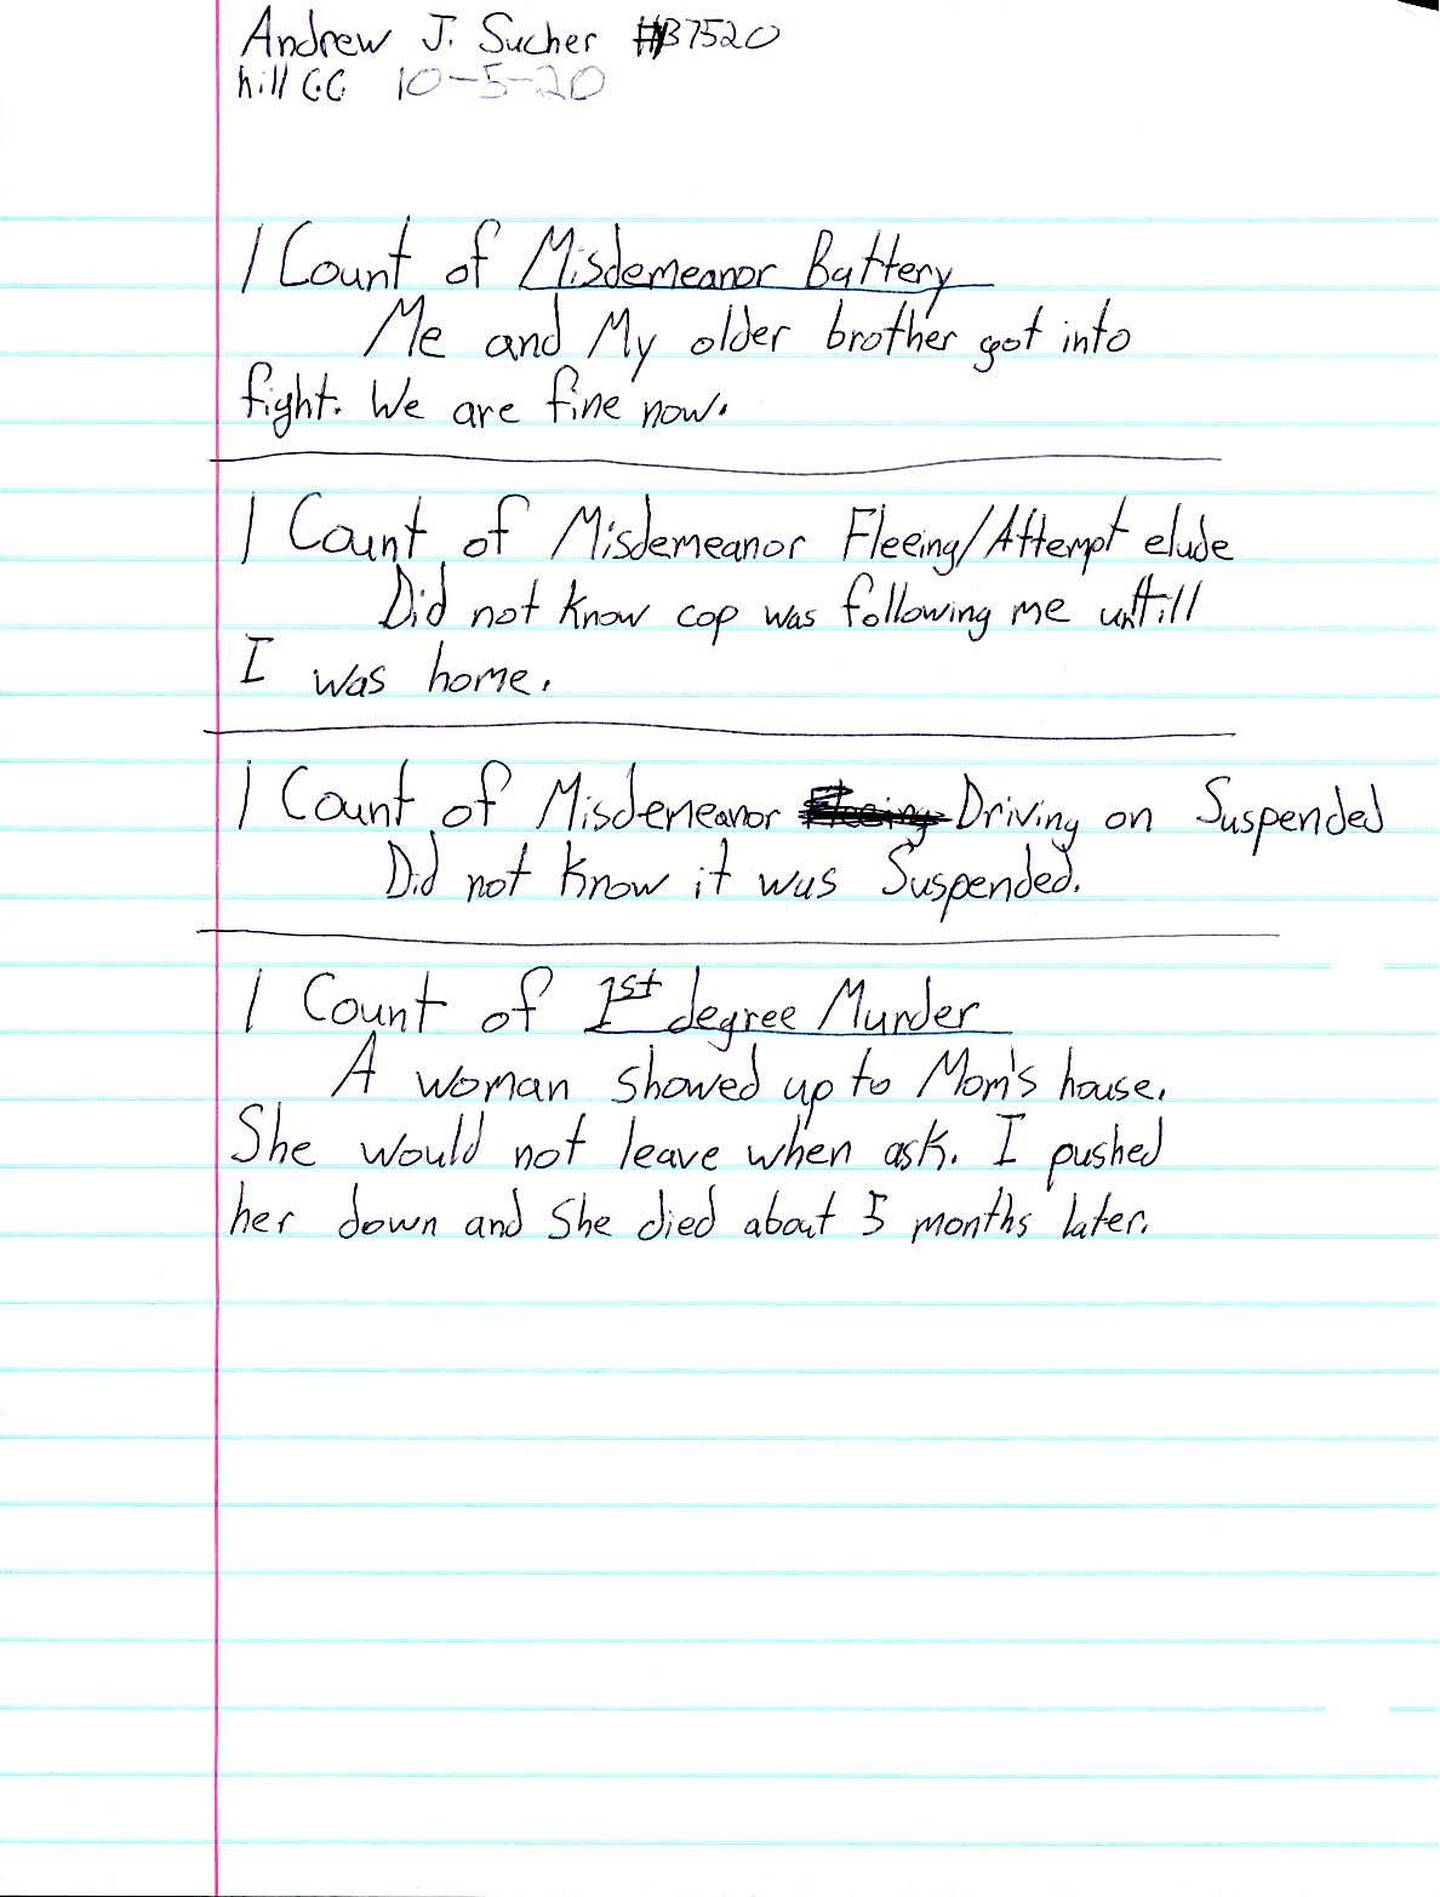 Andrew J. Sucher #B7520
hill C.C 10-5-20
1 Count of Misdemeanor Battery
Me and My older brother got into
fight. We are fine now.
1 Count of Misdemeanor Fleeing/Attempt elude
Did not know cop was following me untill
I was home.
1 Count of Misdemeanor Fleeing Driving on Suspended
Did not know it was Suspended.
1 Count of 1st degree Murder
A woman showed up to Mom's house.
She would not leave when ask. I pushed
her down and She died about 5 months later.